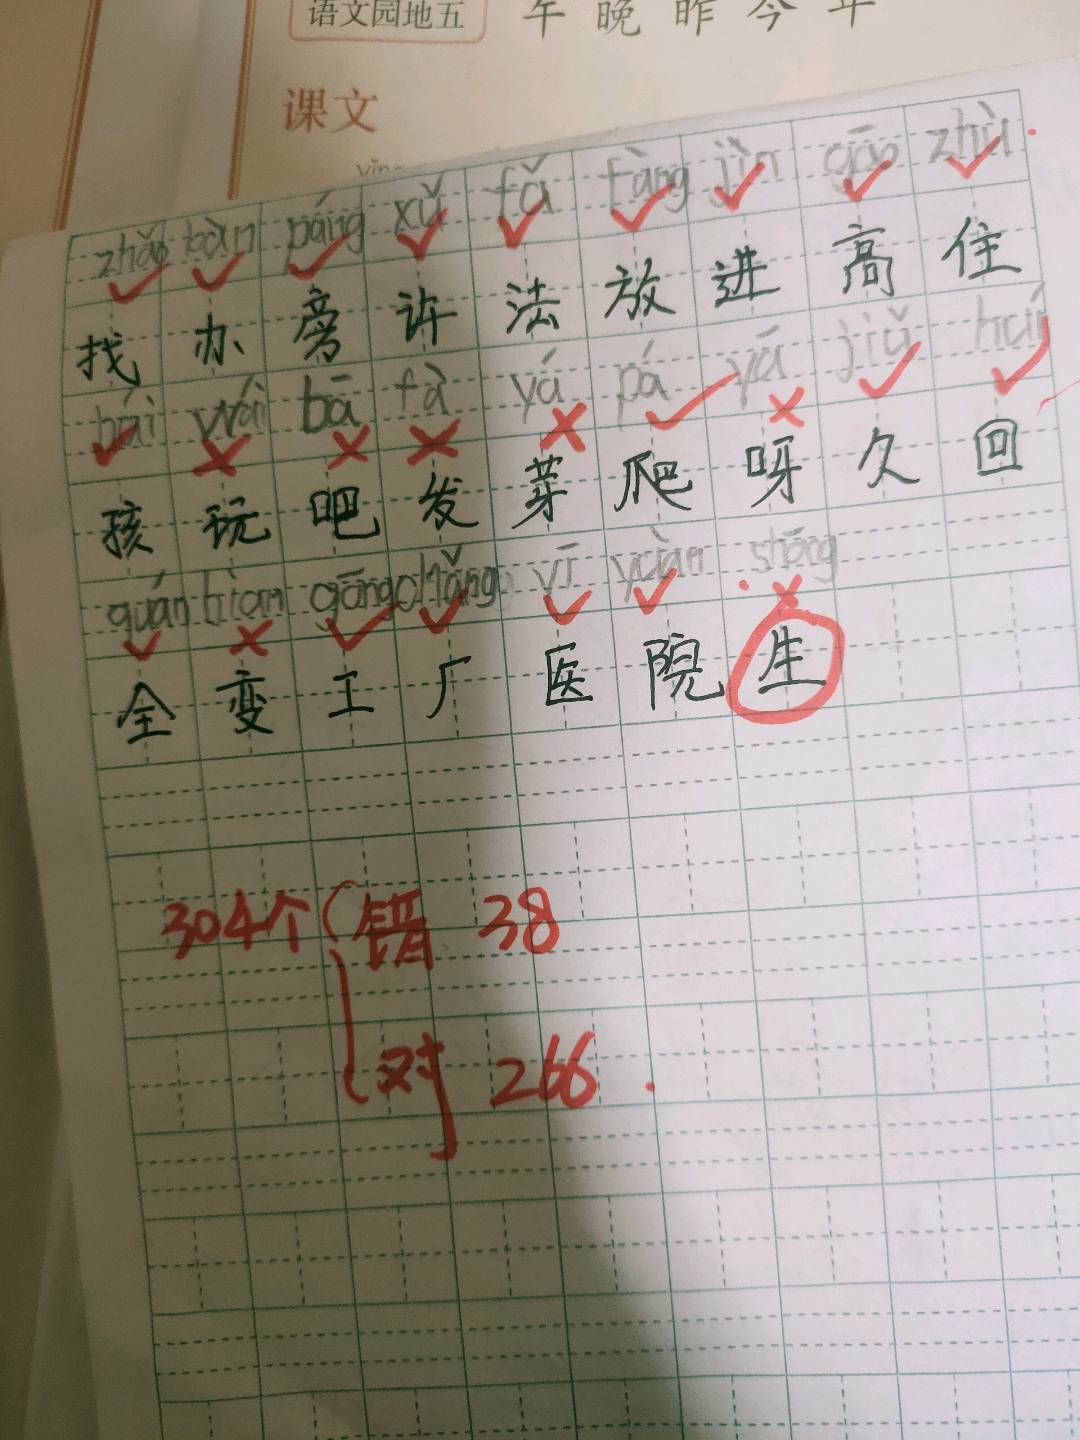 语文园地五 午 晚 昨 今 年
课文
zhǎo bàn páng xǔ fǎ fàng jìn gāo zhù
找 办 旁 许 法 放 进 高 住
hái wái bā fà yá pá yá jiǔ huí
孩 玩 吧 发 芽 爬 呀 久 回
quán bian gōng chǎng yī yuàn shōng
全 变 工 厂 医 院 生
304个 错 38
对 266.